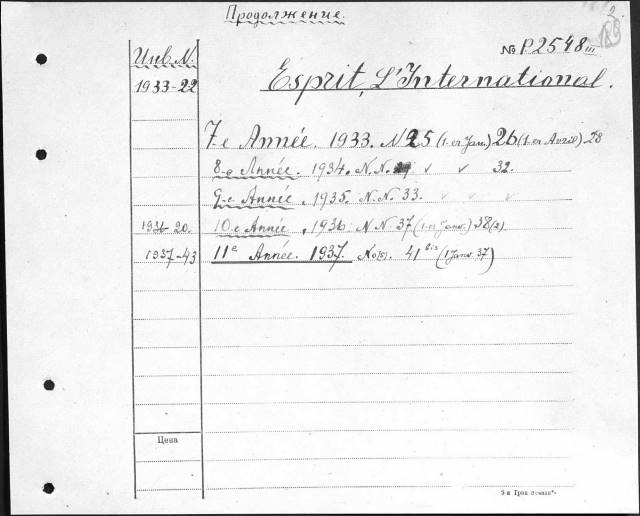 Продолжение.
2
Инв. N.
№ P.2548 III
1933-22
Esprit, L'International.
7-e Année. 1933. N 25 (1-er Jan.) 26 (1-er Avril) 28
8-e Année. 1934. N.N. 29 v v 32.
9-e Année, 1935. N.N. 33. v v v
1936 20. 10-e Année, 1936. N N 37 (1-er Janv.) 38 (2).
1937-43 11e Année. 1937. No(s). 41 bis (1 Janv. 37)
Цена